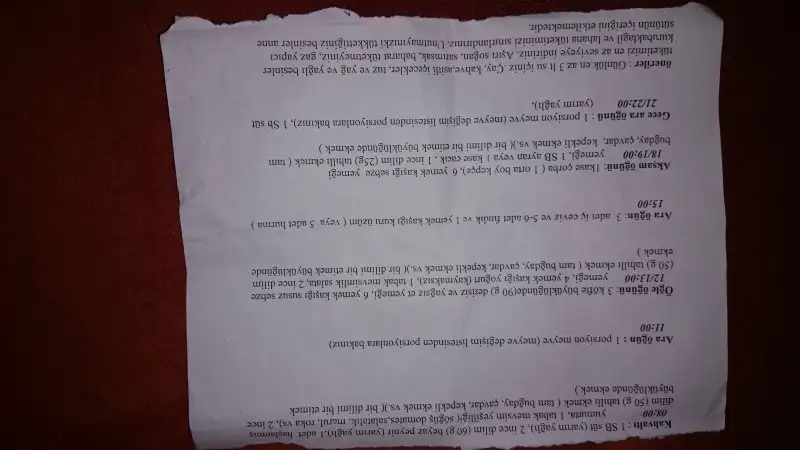 Kahvaltı : 1 SB süt (yarım yağlı), 2 ince dilim (60 g) beyaz peynir (yarım yağlı),1 adet haşlanmış
08:00 yumurta, 1 tabak mevsim yeşilliği( söğüş domates,salatalık, marul, roka vs), 2 ince
dilim (50 g) tahıllı ekmek ( tam buğday, çavdar, kepekli ekmek vs.)( bir dilimi bir etimek
büyüklüğünde ekmek )
Ara öğün : 1 porsiyon meyve (meyve değişim listesinden porsiyonlara bakınız)
11:00
Öğle öğünü: 3 köfte büyüklüğünde(90 g) derisiz ve yağsız et yemeği, 6 yemek kaşığı susuz sebze
12/13:00 yemeği, 4 yemek kaşığı yoğurt (kaymaksız), 1 tabak mevsimlik salata, 2 ince dilim
(50 g) tahıllı ekmek ( tam buğday, çavdar, kepekli ekmek vs.)( bir dilimi bir etimek büyüklüğünde
ekmek )
Ara öğünü: 3 adet iç ceviz ve 5-6 adet fındık ve 1 yemek kaşığı kuru üzüm ( veya 5 adet hurma )
15:00
Akşam öğünü: 1kase çorba ( 1 orta boy kepçe), 6 yemek kaşığı sebze yemeği
18/19:00 yemeği, 1 SB ayran veya 1 kase cacık , 1 ince dilim (25g) tahıllı ekmek ( tam
buğday, çavdar, kepekli ekmek vs.)( bir dilimi bir etimek büyüklüğünde ekmek )
Gece ara öğünü : 1 porsiyon meyve (meyve değişim listesinden porsiyonlara bakınız), 1 Sb süt
21/22:00 (yarım yağlı),
öneriler : Günlük en az 3 lt su içiniz. Çay, kahve,asitli içecekler, tuz ve yağ ve yağlı besinler
tüketimizi en az seviyeye indiriniz. Aşırı soğan, sarımsak, baharat tüketmeyiniz, gaz yapıcı
kurubaklagil ve lahana tüketiminizi sınırlandırınız. Unutmayınızki tükettiğiniz besinler anne
sütünün içeriğini etkilemektedir.